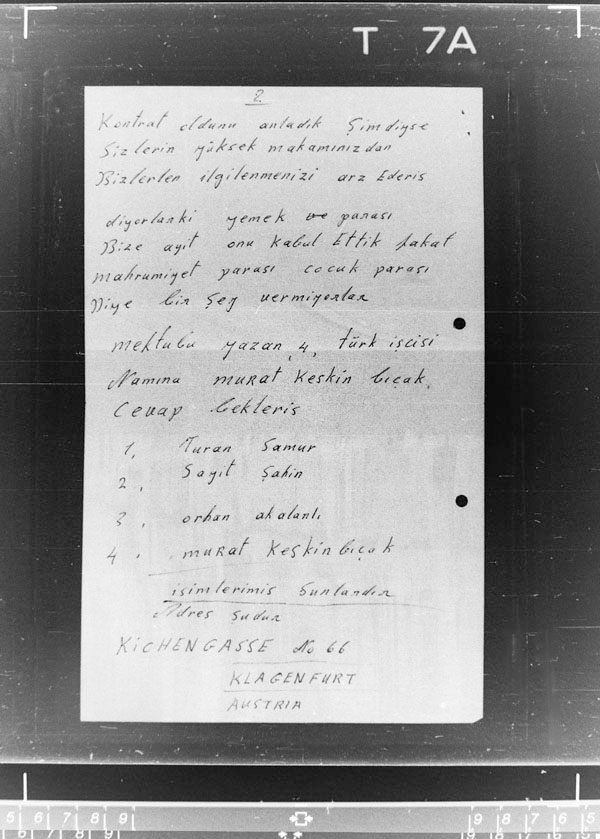 T 7A
2
Kontrat oldunu anladık Şimdiyse
Sizlerin yüksek makamınızdan
Bizlerlen ilgilenmenizi arz Ederis
diyorlarki yemek ve parası
Bize ayit onu Kabul Ettik fakat
mahrumiyet parası cocuk parası
Diye bir Şey vermiyorlar
mektubu yazan 4, türk işcisi
Namına muRat Keskin bıçak.
Cevap bekleris
1, Turan Samur
2, Sayit Şahin
3, orhan akalanlı
4, muRat Keskin bıçak
isimlerimis Sunlardır
Adres Sudur
KiCHENGASSE No 66
KLAGENFURT
AUSTRIA
5 6 7 8 9
9 8 7 6 5
6 7 8 9
9 8 7 6